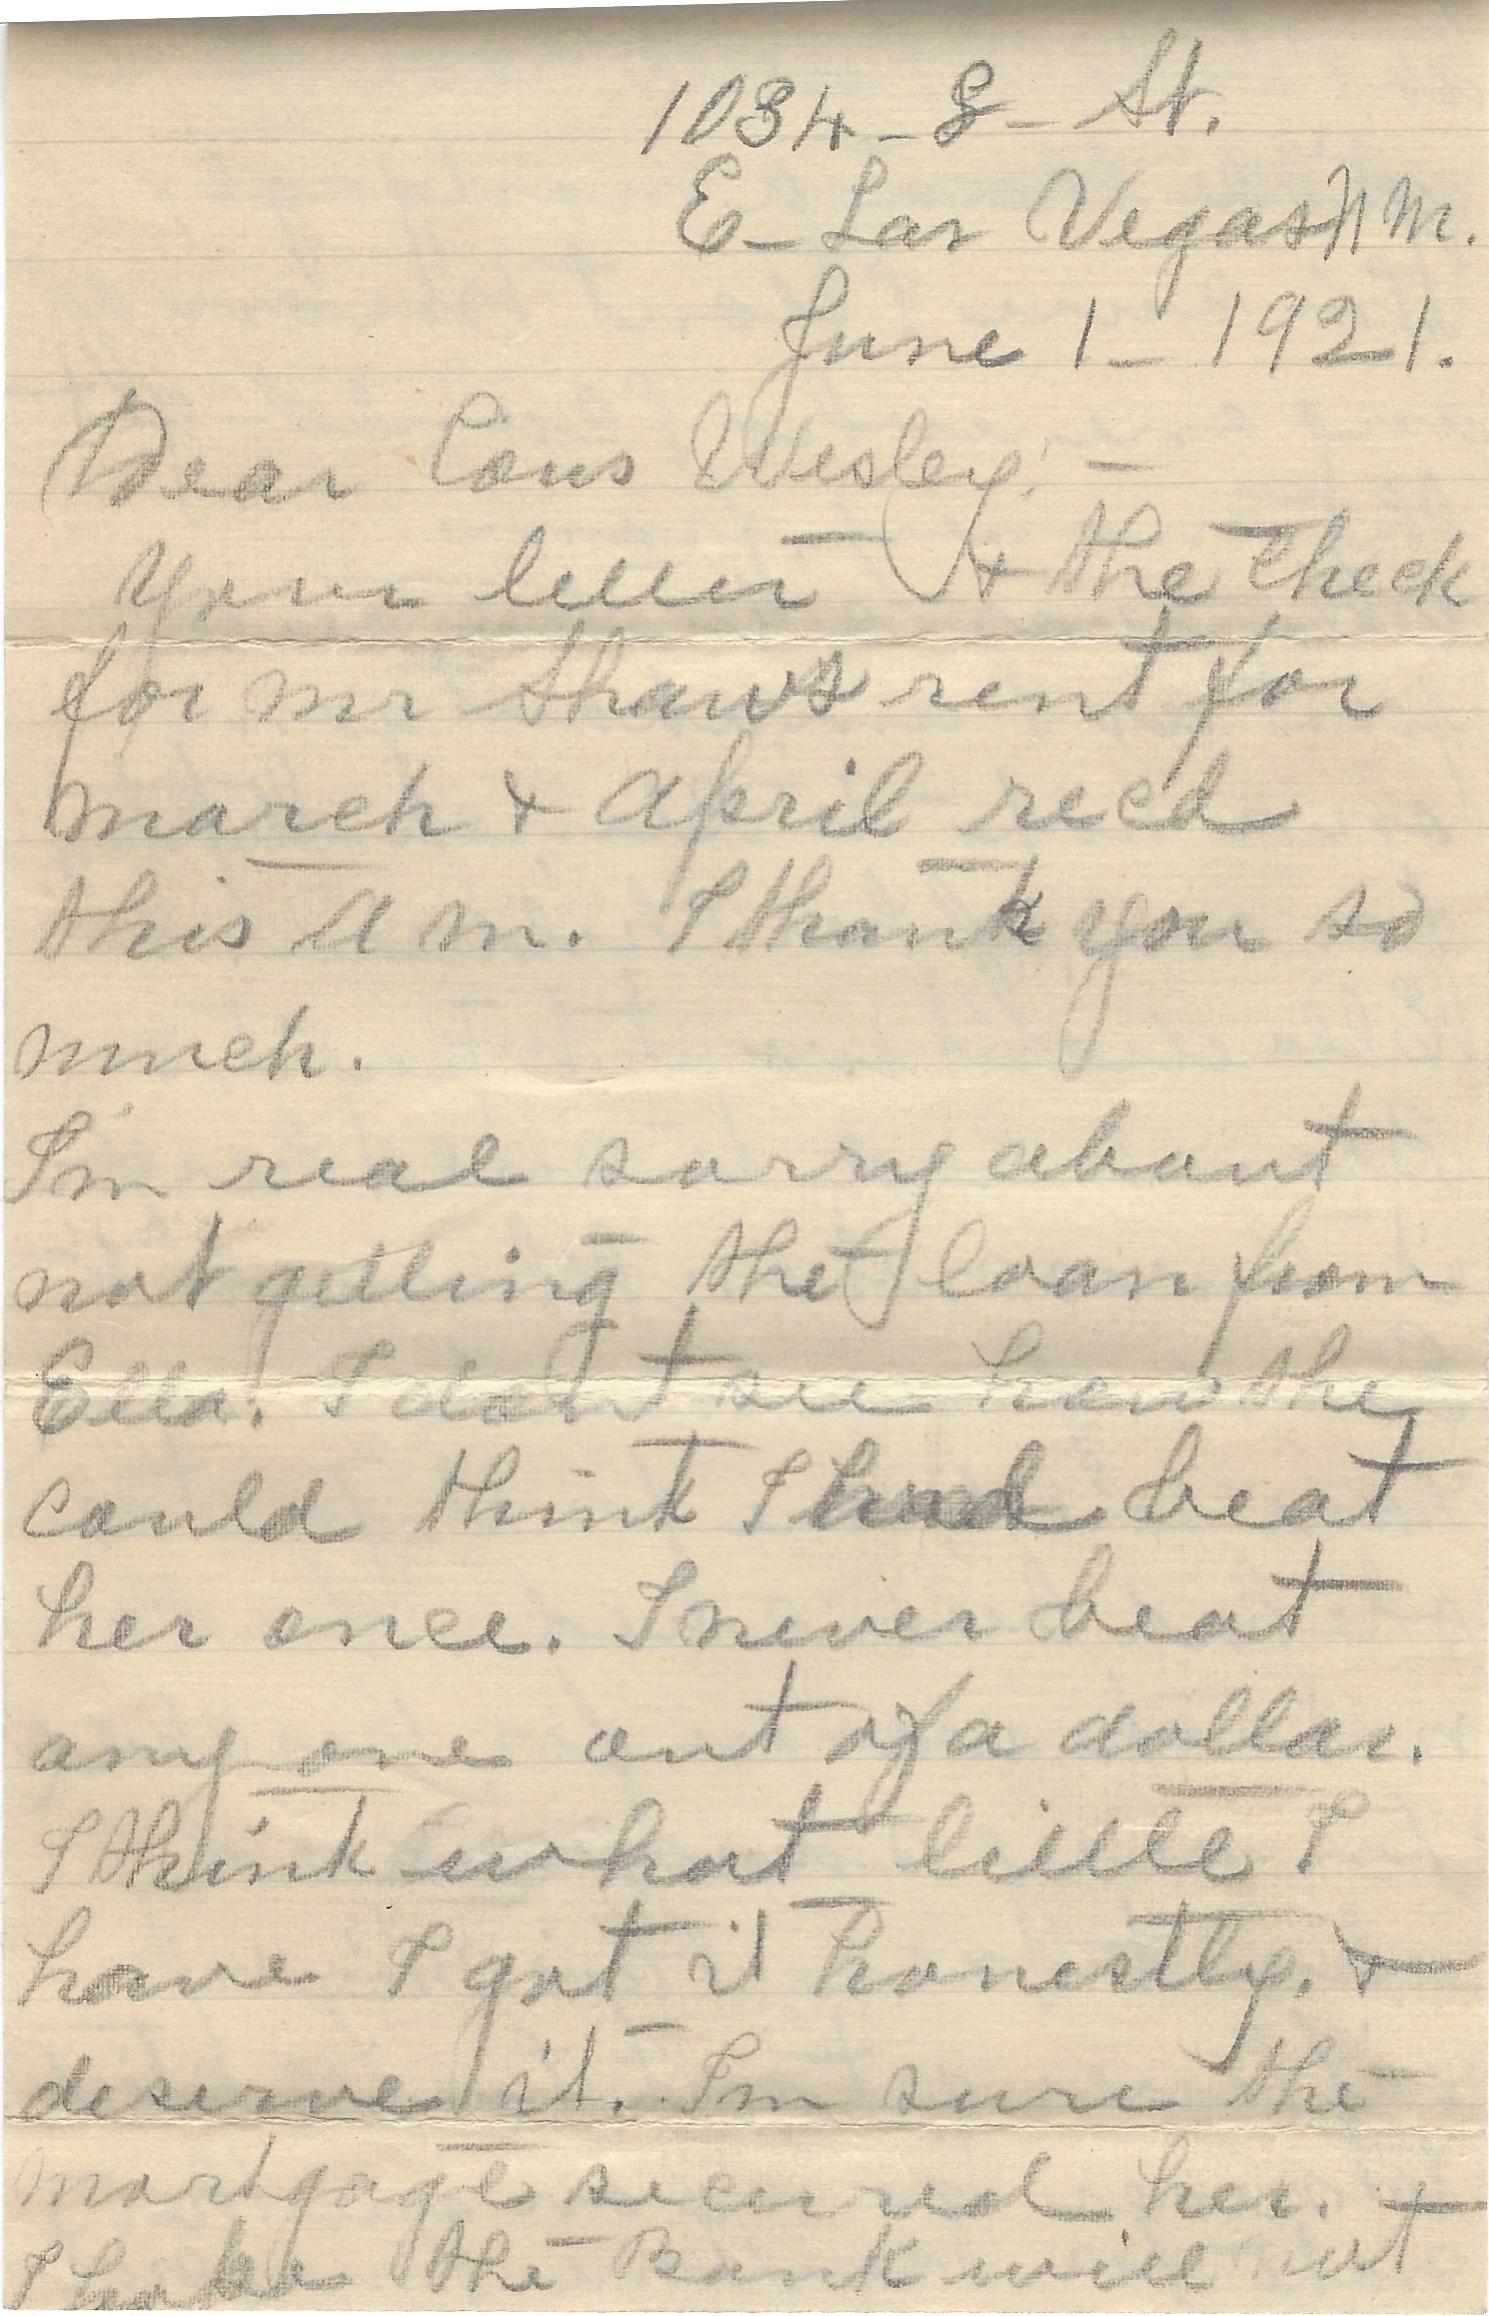 1034 - 8 - St.
E - Las Vegas N M.
June 1 - 1921.
Dear Cous Wesley: -
Your letter & the check
for Mr Shaws rent for
March & April recd
this A M. I thank you so
much.
I'm real sorry about
not getting the loan from
Ella. I don't see how she
could think I had beat
her once. I never beat
any one out of a dollar.
I think what little I
have I got it honestly. &
deserve it. I'm sure the
mortgage secured her. &
I hope the Bank will not